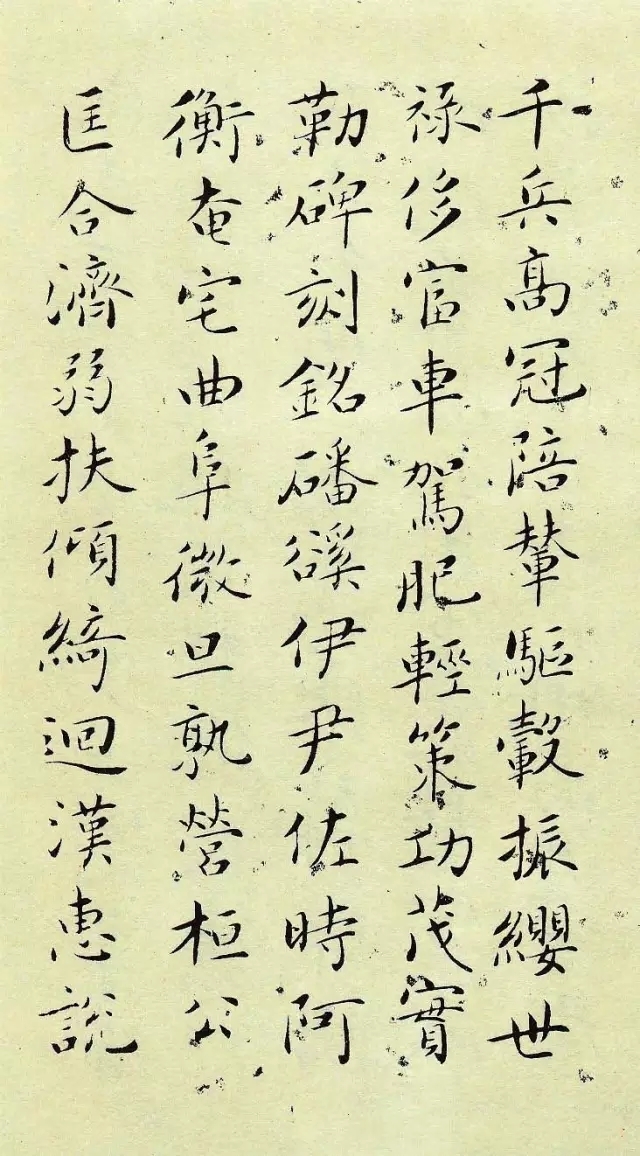 千兵高冠陪輦驅轂振纓世
祿侈富車駕肥輕策功茂實
勒碑刻銘磻溪伊尹佐時阿
衡奄宅曲阜微旦孰營桓公
匡合濟弱扶傾綺迴漢惠說